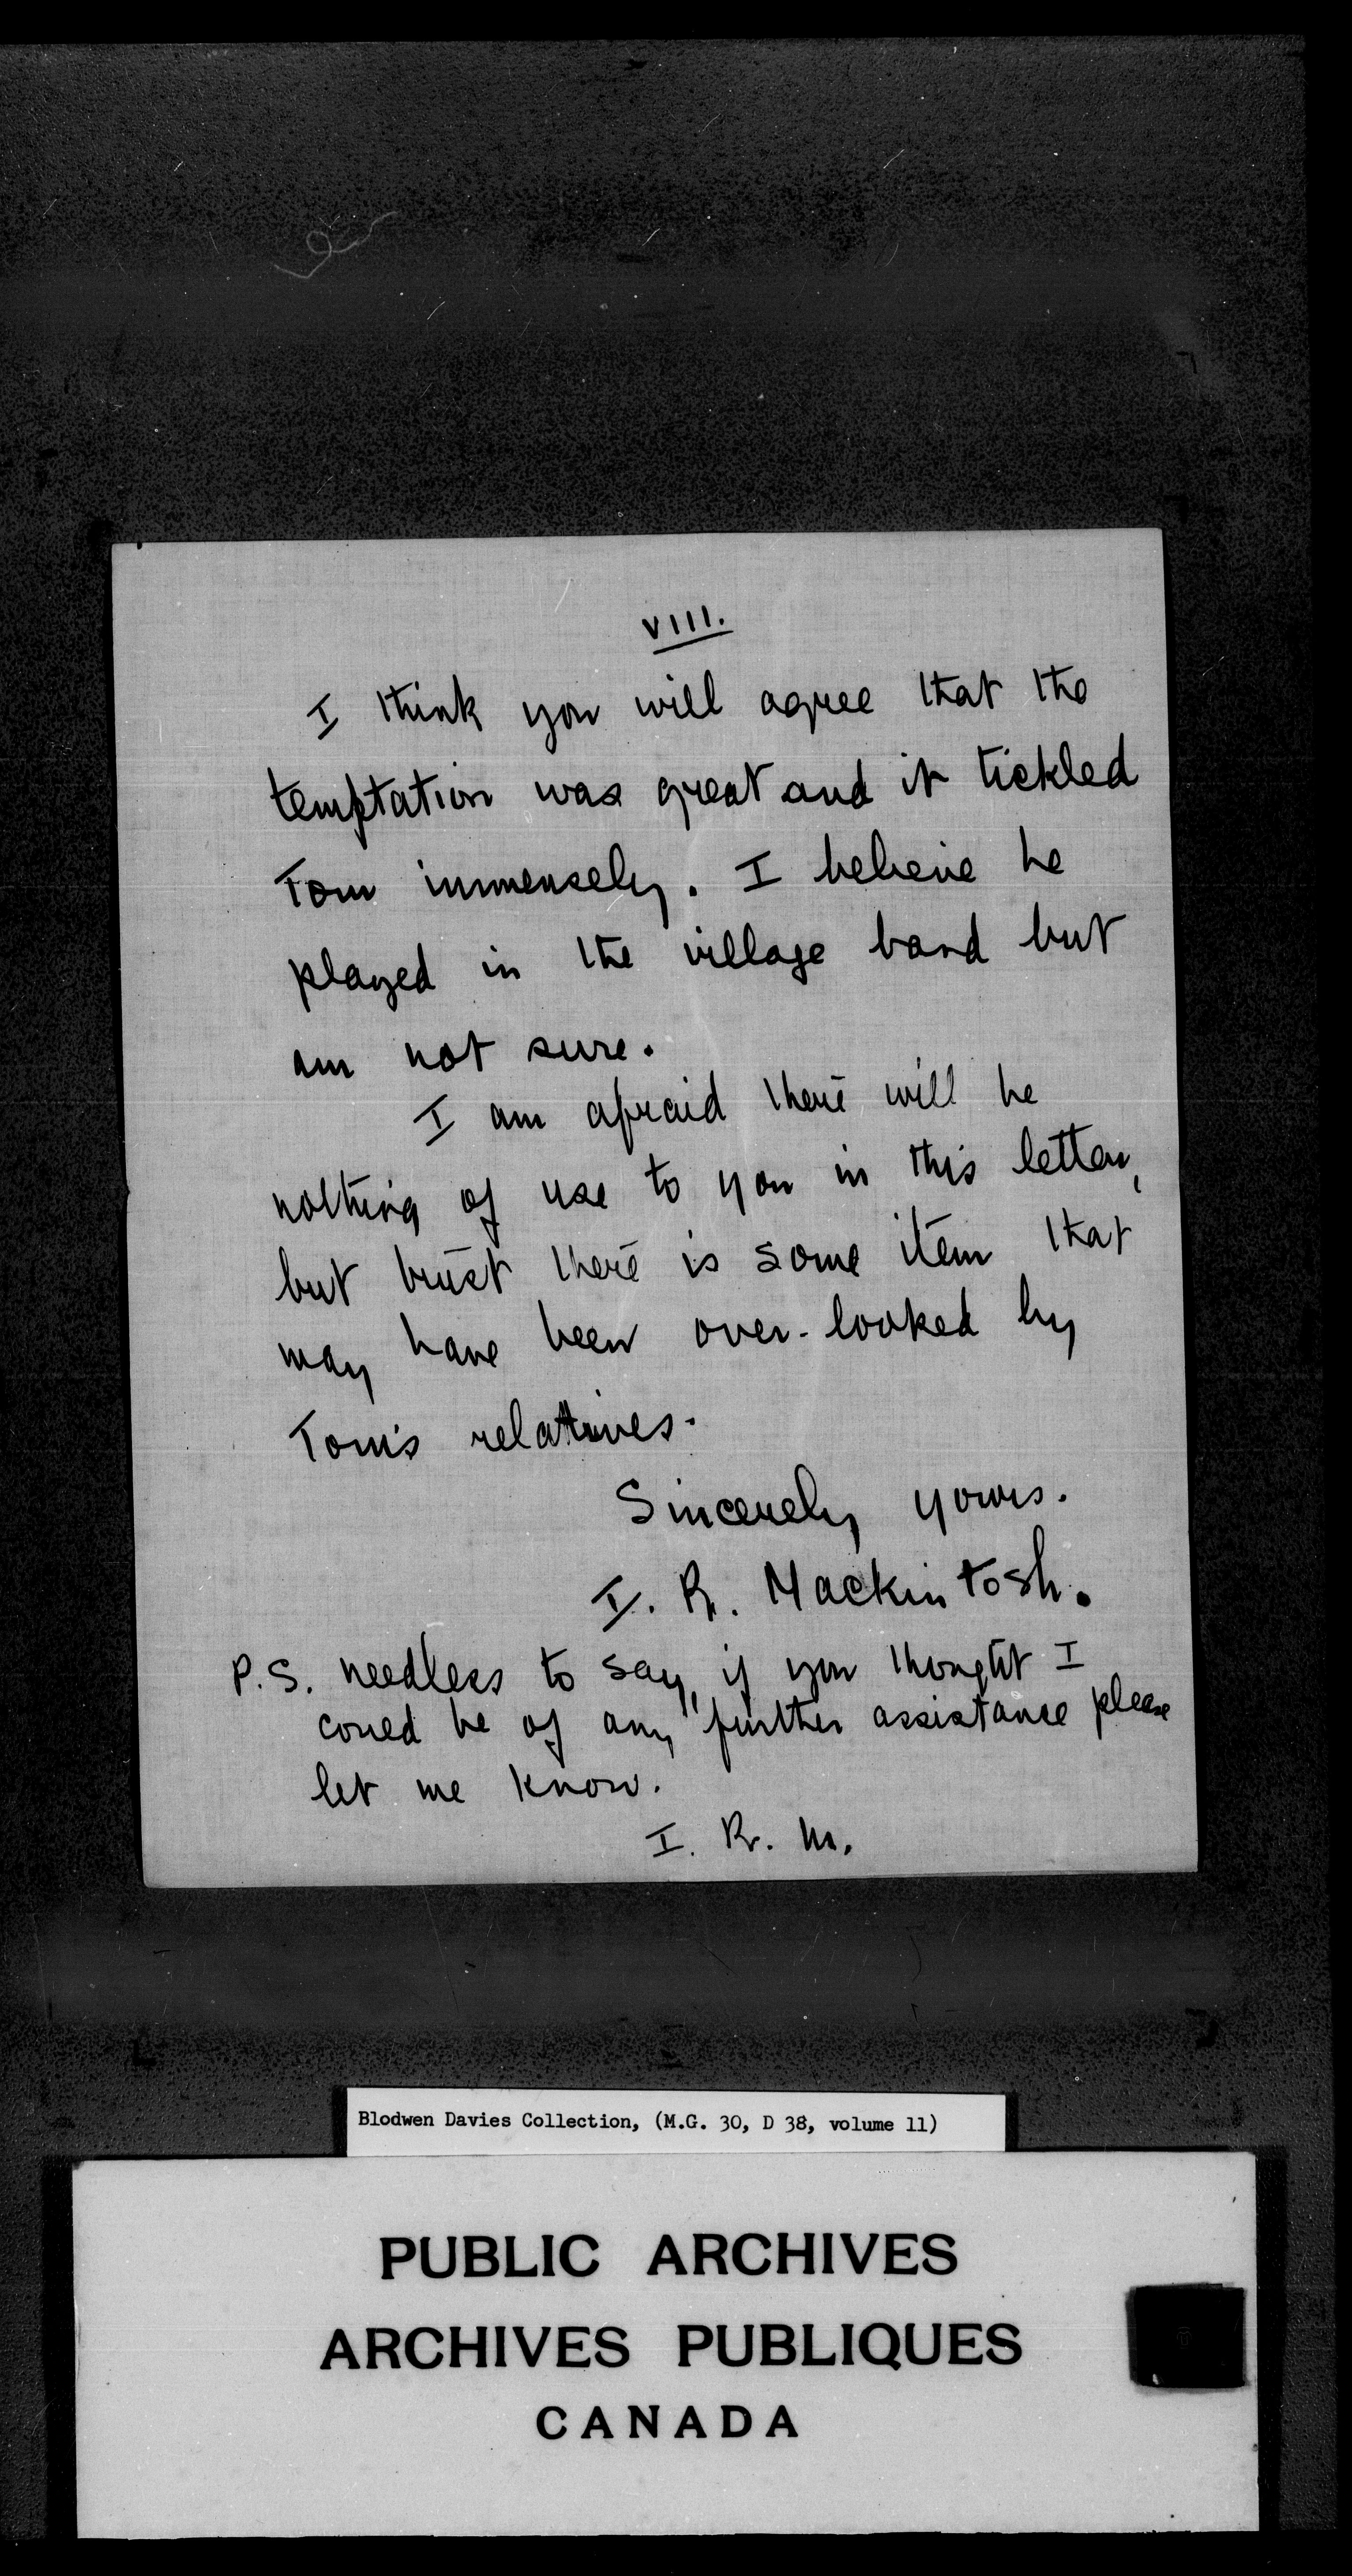 VIII.
I think you will agree that the
temptation was great and it tickled
Tom immensely. I believe he
played in the village band but
am not sure.
I am afraid there will be
nothing of use to you in this letter,
but trust there is some item that
may have been over-looked by
Tom's relatives.
Sincerely yours.
I. R. Mackintosh.
P.S. needless to say, if you thought I
could be of any further assistance please
let me know.
I. R. M.
Blodwen Davies Collection, (M.G. 30, D 38, volume 11)
PUBLIC ARCHIVES
ARCHIVES PUBLIQUES
CANADA